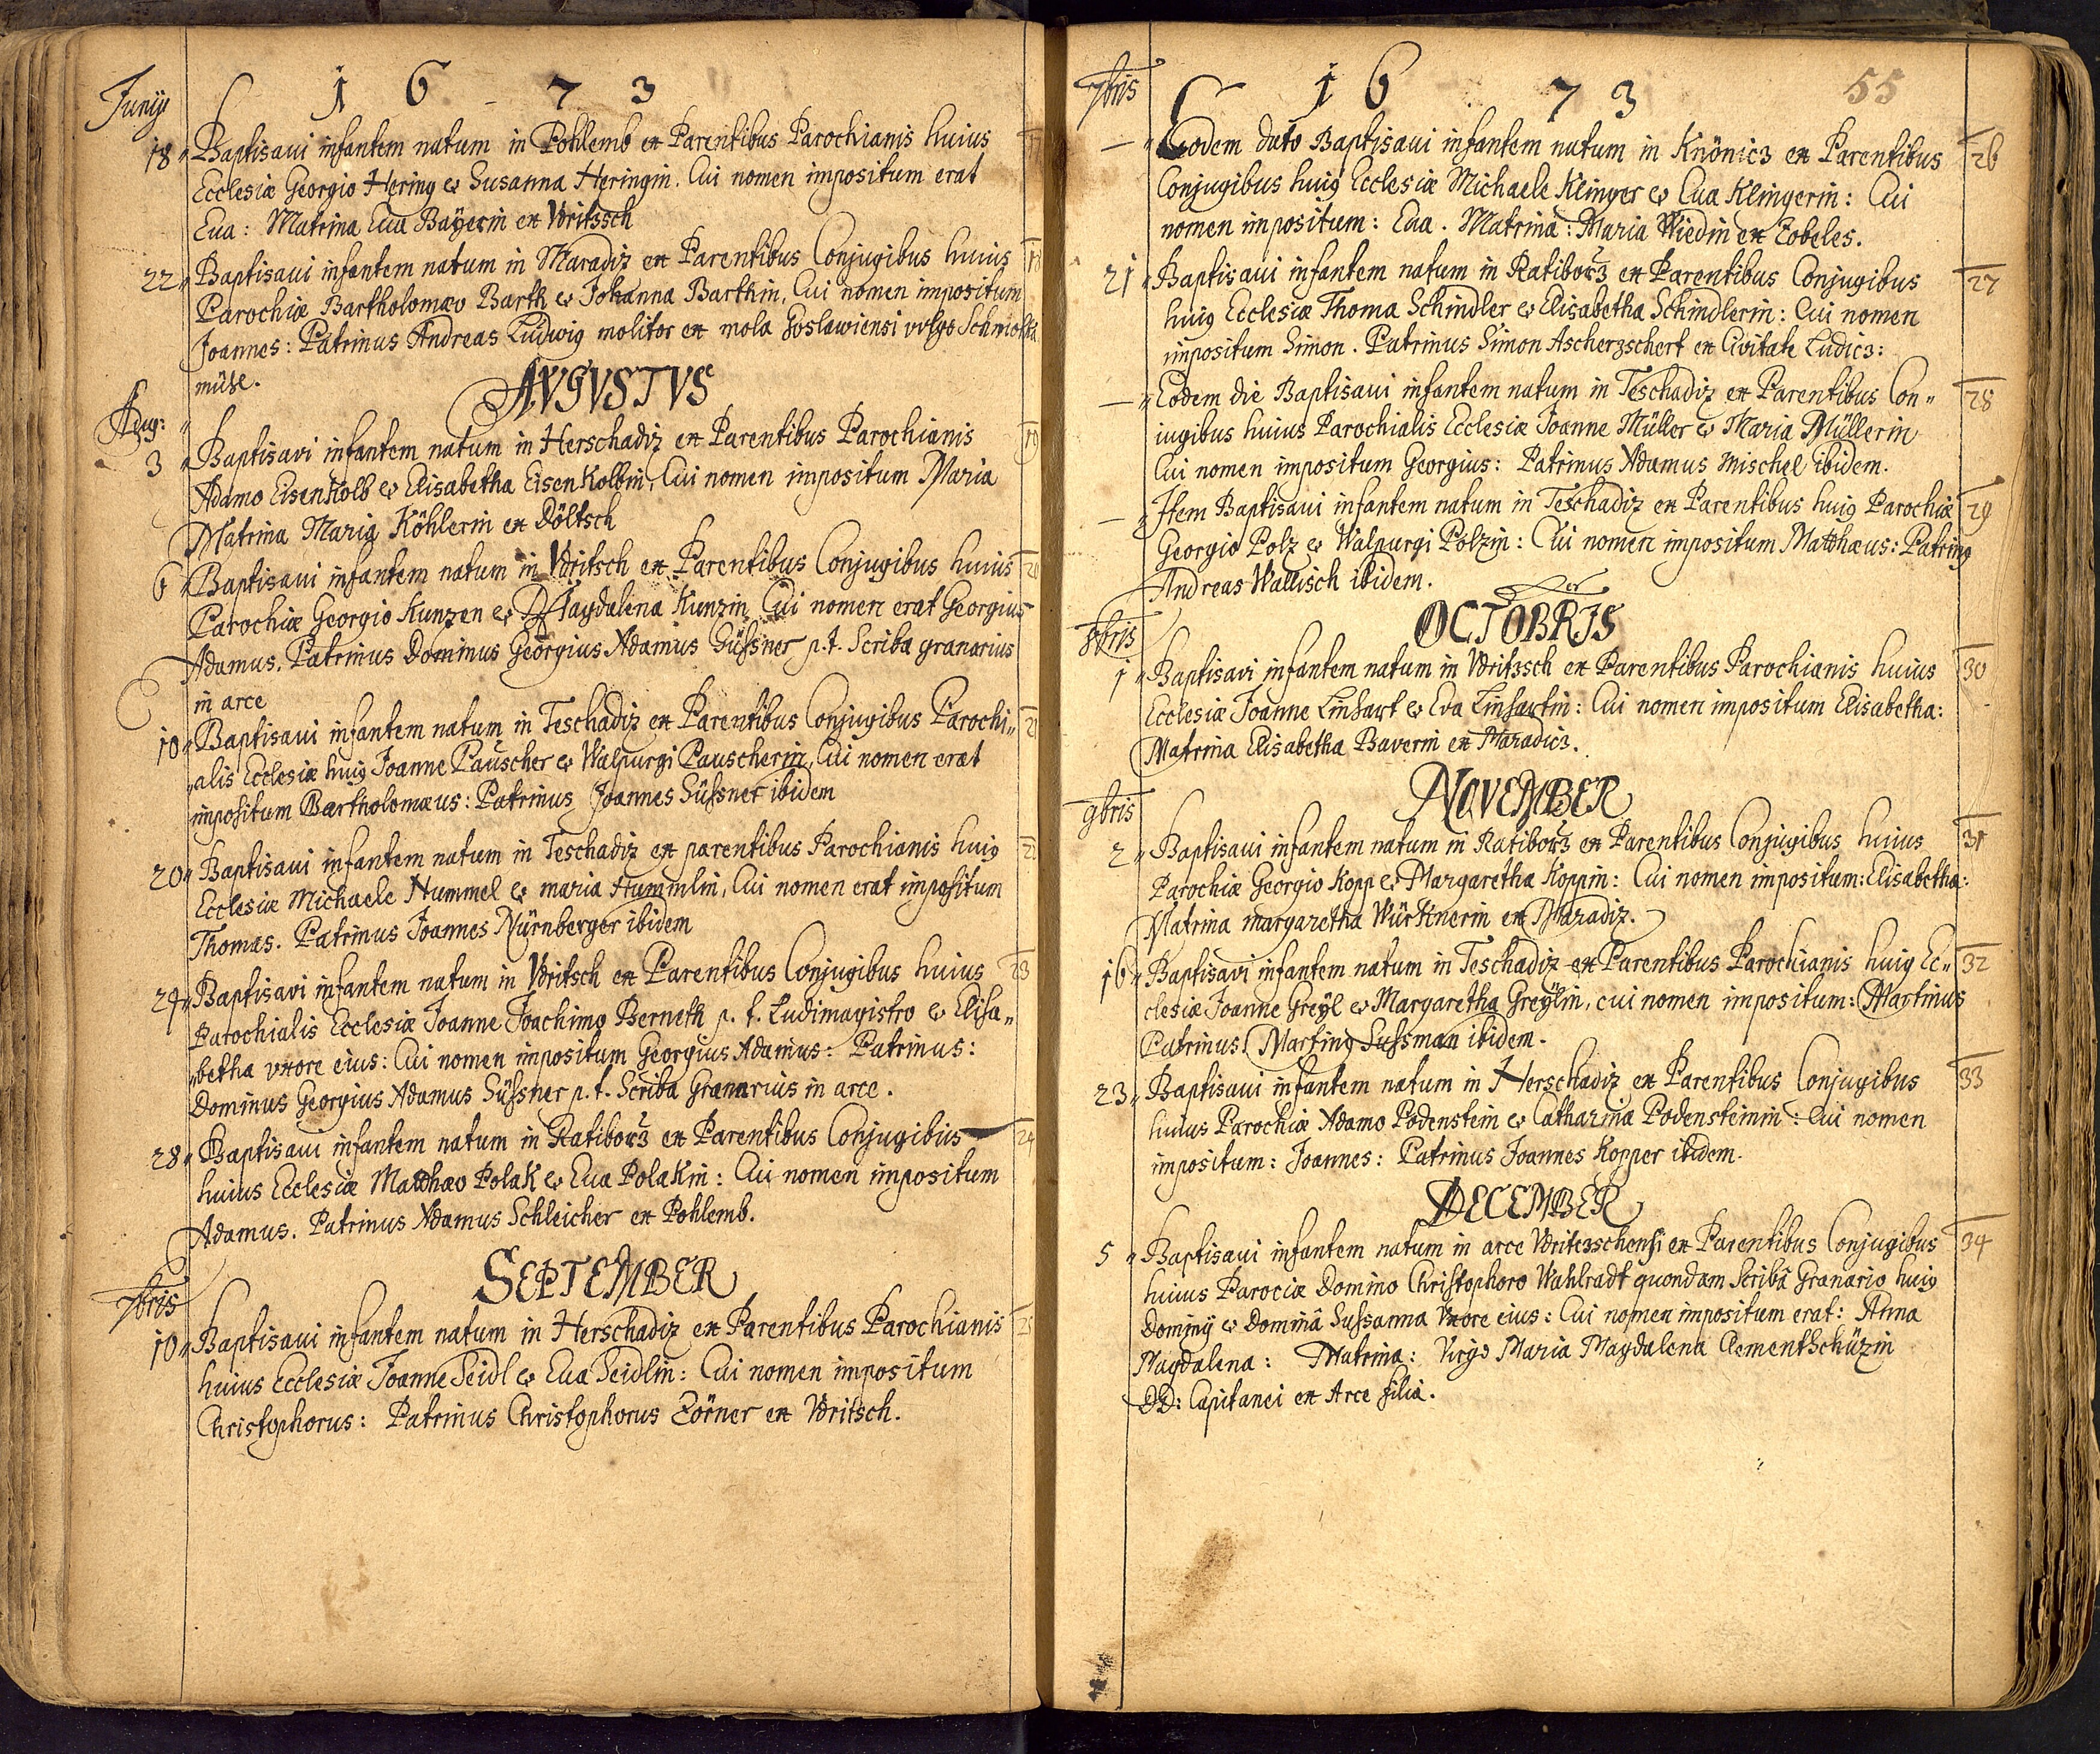 1673
Junÿ
18 Baptisavi infantem natum in Pohlemb ex Parentibus Parochianis huius
Ecclesiæ Georgio Hering & Susanna Heringin. Cui nomen impositum erat
Eua: Matrina Eua Baÿerin ex Vdritzsch
22 Baptisaui infantem natum in Maradiz ex Parentibus Conjugibus huius 18
Parochiæ Bartholomæo Barth & Johanna Barthin, Cui nomen impositum
Joannes: Patrinus Andreas Ludwig molitor ex mola Goslawiensi vulgo
mühl.
AVGVSTVS
Aug:
3 Baptisavi infantem natum in Herschadiz ex Parentibus Parochianis 19
Adamo Eisenkolb & Elisabetha Eisenkolbin, Cui nomen impositum Maria
Matrina Maria Köhlerin ex Döltsch
6 Baptisaui infantem natum in Vdritsch ex Parentibus Conjugibus huius 20
Parochiæ Georgio Kunzen & Magdalena Kunzin Cui nomen erat Georgius
Adamus. Patrinus Dominus Georgius Adamus Süssner p.t. Scriba granarius
in arce
10 Baptisaui infantem natum in Teschadiz ex Parentibus Conjugibus Parochi„ 21
„alis Ecclesiæ huig Joanne Pauscher & Walpurgi Pauscherin, Cui nomen erat
impositum Bartholomæus: Patrinus Joannes Süssner ibidem
20 Baptisaui infantem natum in Teschadiz ex parentibus Parochianis huig 22
Ecclesiæ Michaele Hummel & maria Hummlin, Cui nomen erat impositum
Thomas. Patrinus Joannes Nürnberger ibidem
24 Baptisavi infantem natum in Vdritsch ex Parentibus Conjugibus huius 23
Parochialis Ecclesiæ Joanne Joachimo Berneth p. t. Ludimagistro & Elisa„
„betha vxore eius: Cui nomen impositum Georgius Adamus: Patrinus:
Dominus Georgius Adamus Süssner p. t. Scriba Granarius in arce.
28 Baptisaui infantem natum in Ratiborz ex Parentibus Conjugibus 24
huius Ecclesiæ Matthæo Polak & Eua Polakin: Cui nomen impositum
Adamus. Patrinus Adamus Schleicher ex Pohlemb.
SEPTEMBER
7bris
10 Baptisaui infantem natum in Herschadiz ex Parentibus Parochianis 25
huius Ecclesiæ Joanne Seidl & Eua Seidlin: Cui nomen impositum
Christophorus: Patrinus Christophorus Zörner ex Vdritsch.
7bris 1673 55
— Eodem dato Baptisaui infantem natum in Knönicz ex Parentibus 26
Conjugibus huig Ecclesiæ Michaele Klinger & Eua Klingerin: Cui
nomen impositum: Eua. Matrina: Maria Wiedin ex Zobeles.
21 Baptisaui infantem natum in Ratiborz ex Parentibus Conjugibus 27
huig Ecclesiæ Thoma Schindler & Elisabetha Schindlerin: Cui nomen
impositum Simon. Patrinus Simon Ascherzschert ex Civitate Ludicz:
— Eodem die Baptisaui infantem natum in Teschadiz ex Parentibus Con„ 28
iugibus huius Parochialis Ecclesiæ Joanne Müller & Maria Müllerin
Cui nomen impositum Georgius: Patrinus Adamus Mischel ibidem.
— Item Baptisaui infantem natum in Teschadiz ex Parentibus huig Parochiæ 29
Georgio Polz & Walpurgi Polzin: Cui nomen impositum Matthæus: Patring
Andreas Wallisch ibidem.
OCTOBRIS
8bris
1 Baptisavi infantem natum in Vdritzsch ex Parentibus Parochianis huius 30
Ecclesiæ Joanne Linhart & Eva Linhartin: Cui nomen impositum Elisabetha:
Matrina Elisabetha Baverin ex Maradicz.
NOVEMBER
9bris
2 Baptisaui infantem natum in Ratiborz ex Parentibus Conjugibus huius 31
Parochiæ Georgio Kopp & Margaretha Koppin: Cui nomen impositum: Elisabetha:
Matrina margaretha Würtknerin ex Maradiz.
16 Baptisavi infantem natum in Teschadiz ex Parentibus Parochianis huig Ec„ 32
clesiæ Joanne Greÿl & Margaretha Greÿlin, cui nomen impositum: Martinus
Patrinus Marting Sussman ibidem.
23 Baptisaui infantem natum in Herschadiz ex Parentibus Conjugibus 33
huius Parochiæ Adamo Podenstein & Catharina Podensteinin: Cui nomen
impositum: Joannes: Patrinus Joannes Kopper ibidem.
DECEMBER
5 Baptisaui infantem natum in arce Vdriterschensi ex Parentibus Conjugibus 34
huius Parociæ Domino Christophoro Wahlradt quondam Scribâ Granario huig
Dominÿ & Dominâ Sussanna Vxore eius: Cui nomen impositum erat: Anna
Magdalena: Matrina: Virgo Maria Magdalena Clementschüzin
DD: Capitanei ex Arce filia.